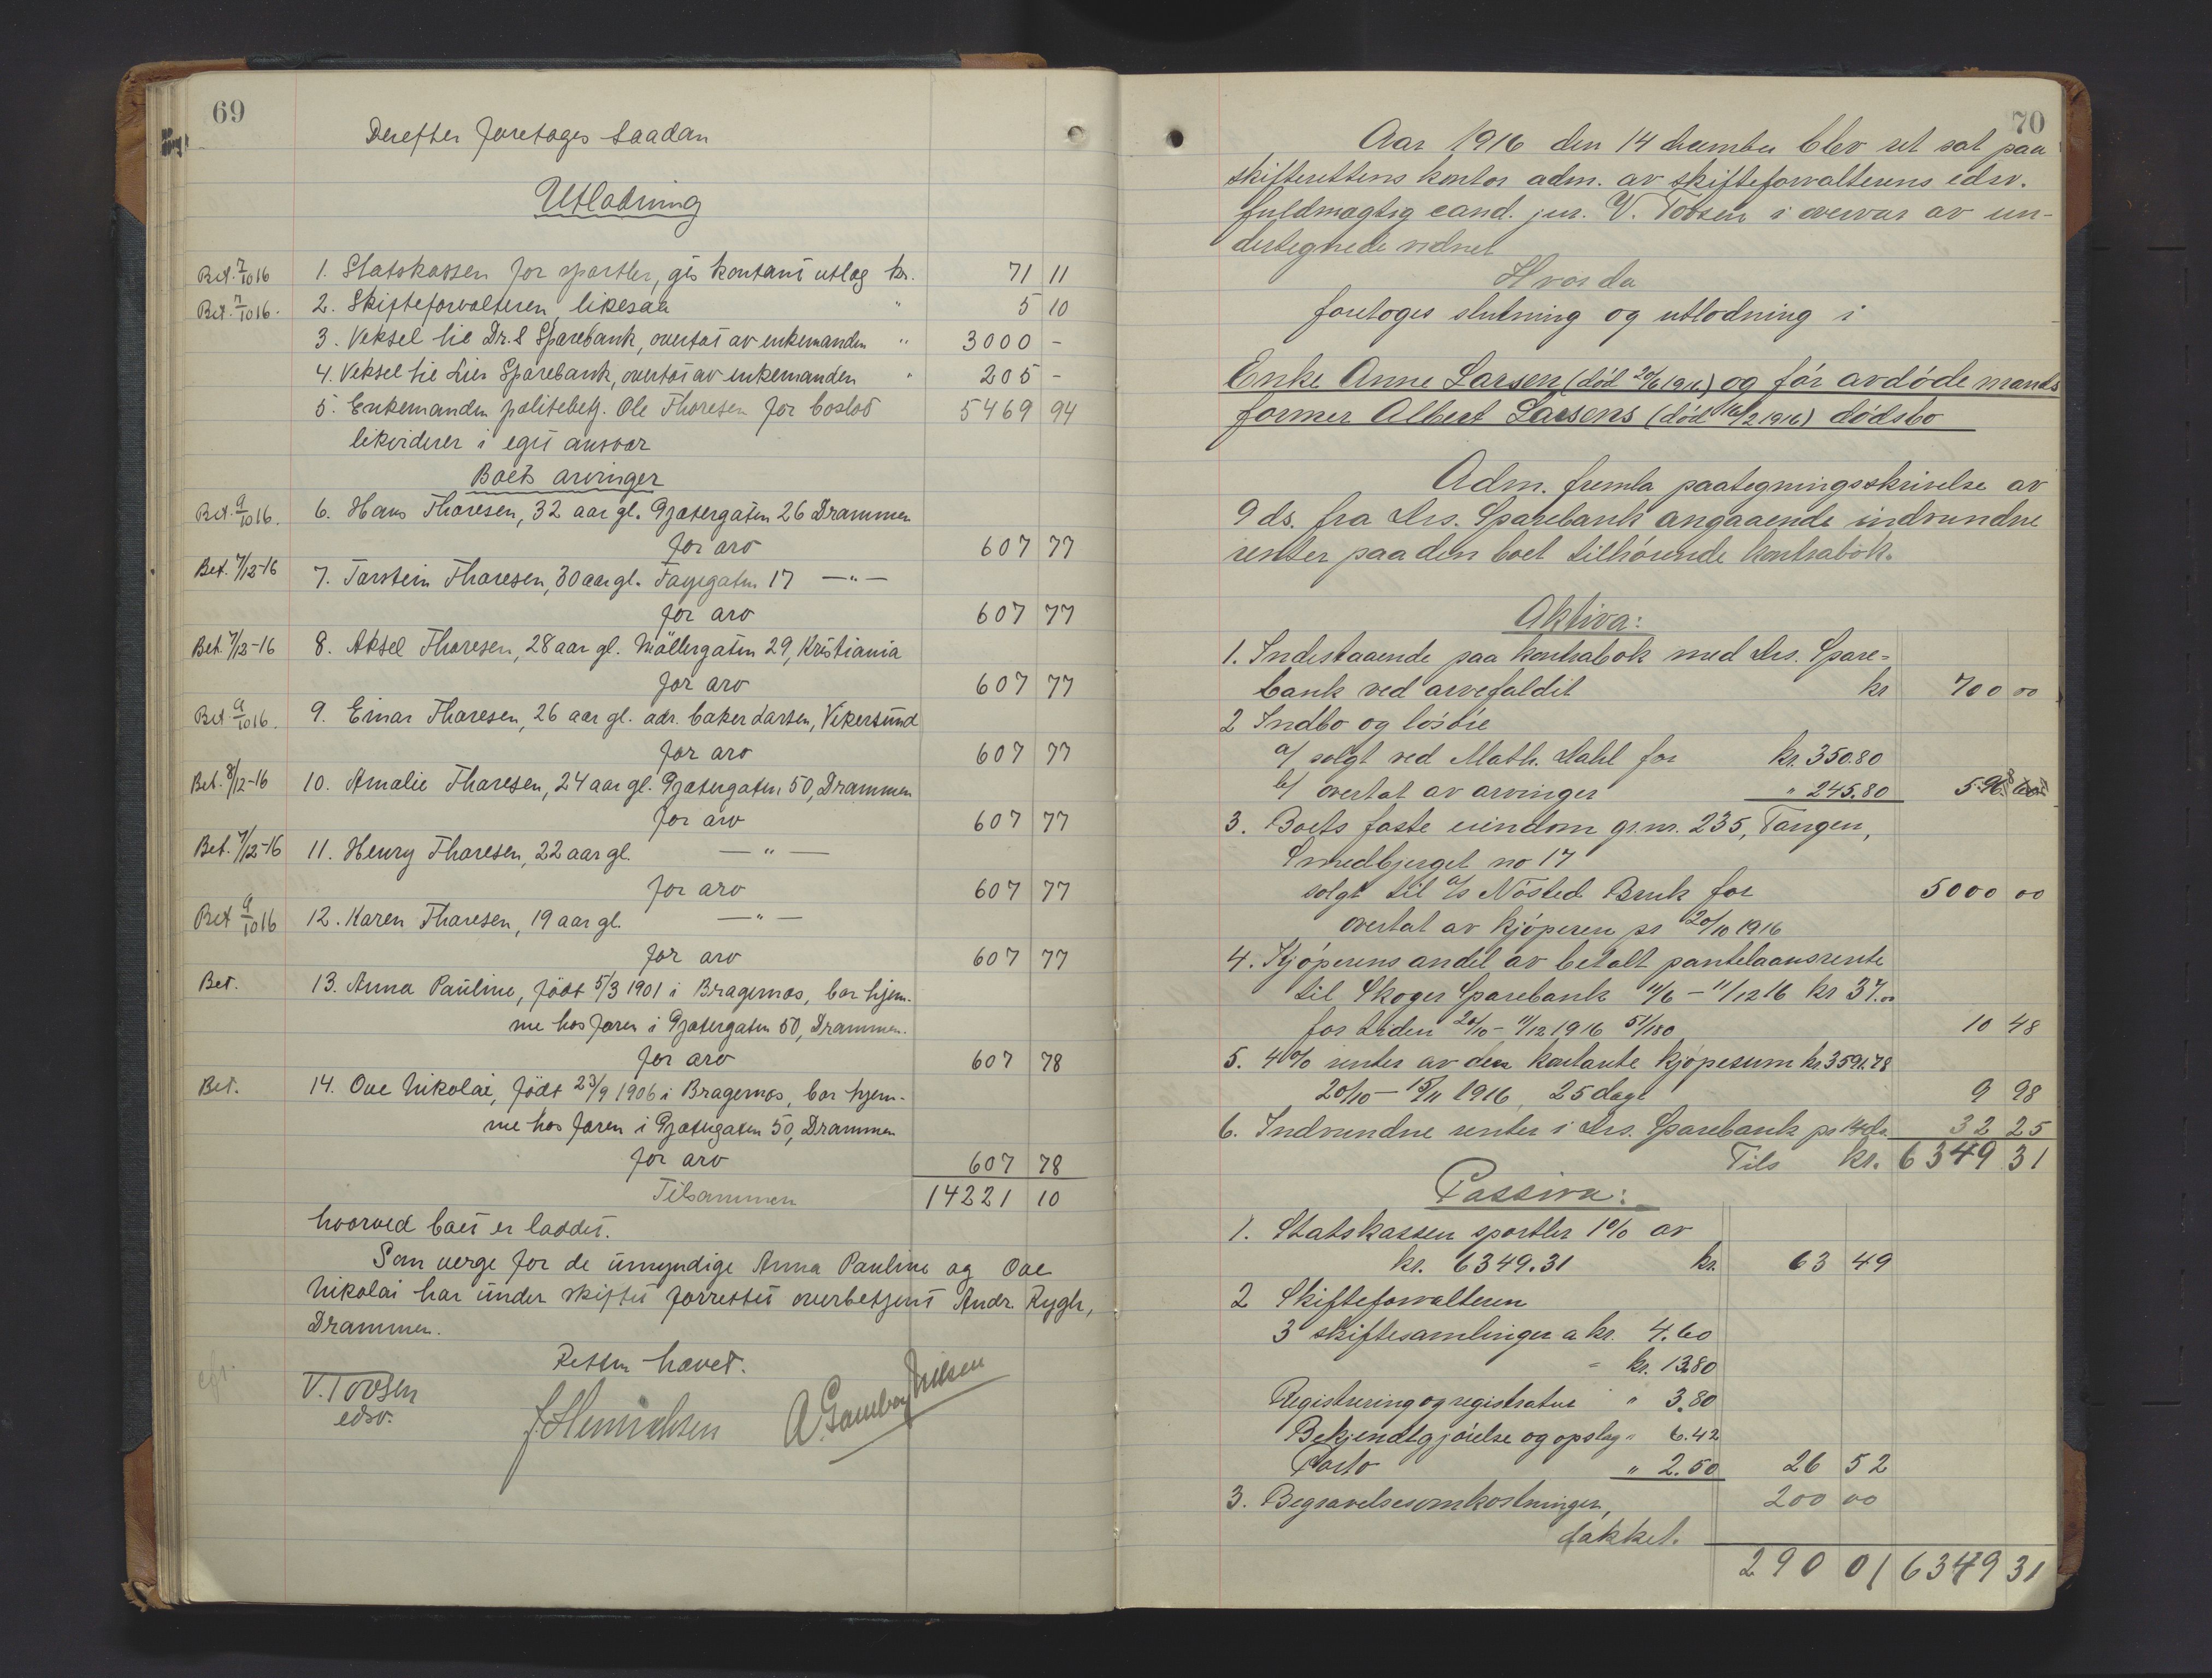 69
Derefter foretoges saadan
Utlodning
Bet. 7/10 16 1. Statskassen for sportler, gis kontant utlæg kr. 71 11
Bet. 7/10 16. 2. Skifteforvalteren, likesaa " 5 10
3. Veksel til Dr.s Sparebank, overtat av enkemanden " 3000 -
4. Veksel til Lier Sparebank, overtat av enkemanden " 205 -
5. Enkemanden politibetj. Ole Thoresen for boslod 5469 94
likviderer i eget ansvar
Boets arvinger
Bet. 9/10 16. 6. Hans Thoresen, 32 aar gl. Gjætergaten 26 Drammen
for arv 607 77
Bet. 7/12-16 7. Torstein Thoresen, 30 aar gl. Fayegaten 17 —"—
for arv 607 77
Bet. 7/12-16 8. Aksel Thoresen, 28 aar gl. Møllergaten 29, Kristiania
for arv 607 77
Bet. 9/10 16. 9. Einar Thoresen, 26 aar gl. adr. baker Larsen, Vikersund
for arv 607 77
Bet. 8/12-16 10. Amalie Thoresen, 24 aar gl. Gjætergaten 50, Drammen
for arv 607 77
Bet. 7/12-16 11. Henry Thoresen, 22 aar gl. —"—
for arv 607 77
Bet 9/10 16 12. Karen Thoresen, 19 aar gl. —"—
for arv 607 77
Bet. 13. Anna Pauline, født 5/3 1901 i Bragernæs, bor hjem-
me hos faren i Gjætergaten 50, Drammen.
for arv 607 78
Bet. 14. Ove Nikolai, født 23/9 1906 i Bragernæs, bor hjem-
me hos faren i Gjætergaten 50, Drammen
for arv 607 78
Tilsammen 14221 10
hvorved boet er loddet.
Som verge for de umyndige Anna Pauline og Ove
Nikolai har under skiftet forrettet overbetjent Andr. Rygh,
Drammen.
Retten hævet.
V. Tovsen
edsv.
J. Henrichsen
A. Gamborg Nilsen
70
Aar 1916 den 14 december blev ret sat paa
skifterettens kontor adm. av skifteforvalterens edsv.
fuldmægtig cand. jur. V. Tovsen i overvær av un-
dertegnede vidner
Hvor da
foretoges slutning og utlodning i
Enke Anne Larsen (død 20/6 1916) og før avdøde mands
former Albert Larsens (død 16/2 1916) dødsbo
Adm. fremla paategningsskrivelse av
9 ds. fra Drs. Sparebank angaaende indvundne
renter paa den boet tilhørende kontrabok.
Aktiva:
1. Indestaaende paa kontrabok med Drs. Spare-
bank ved arvefaldit kr 700 00
2 Indbo og løsøre
a/ solgt ved Math. Dahl for kr. 350.80
b/ overtat av arvinger " 245.80 596
3. Boets faste eiendom gr.nr. 235, Tangen,
Smedbjerget no 17
solgt til a/s Nøsted Bruk for 5000 00
overtat av kjøperen pr 20/10 1916
4. Kjøperens andel av betalt pantelaansrente
til Skoger Sparebank 11/6 – 11/12 16 kr 37.00
for tiden 20/10 – 11/12 1916 51/180 10 48
5. 4% renter av den kontante kjøpesum kr 3591.78
20/10 – 15/11 1916, 25 dage 9 98
6. Indvundne renter i Drs. Sparebank pr 14 ds. 32 25
Tils kr. 6349 31
Passiva:
1. Statskassen sportler 1% av
kr. 6349.31 kr. 63 49
2 Skifteforvalteren
3 skiftesamlinger a kr. 4.60
= kr. 13.80
Registrering og registratur " 3.80
Bekjendtgjørelse og opslag " 6.42
Porto " 2.50 26 52
3. Begravelsesomkostninger, 200 00
dækket.
290 01 6349 31